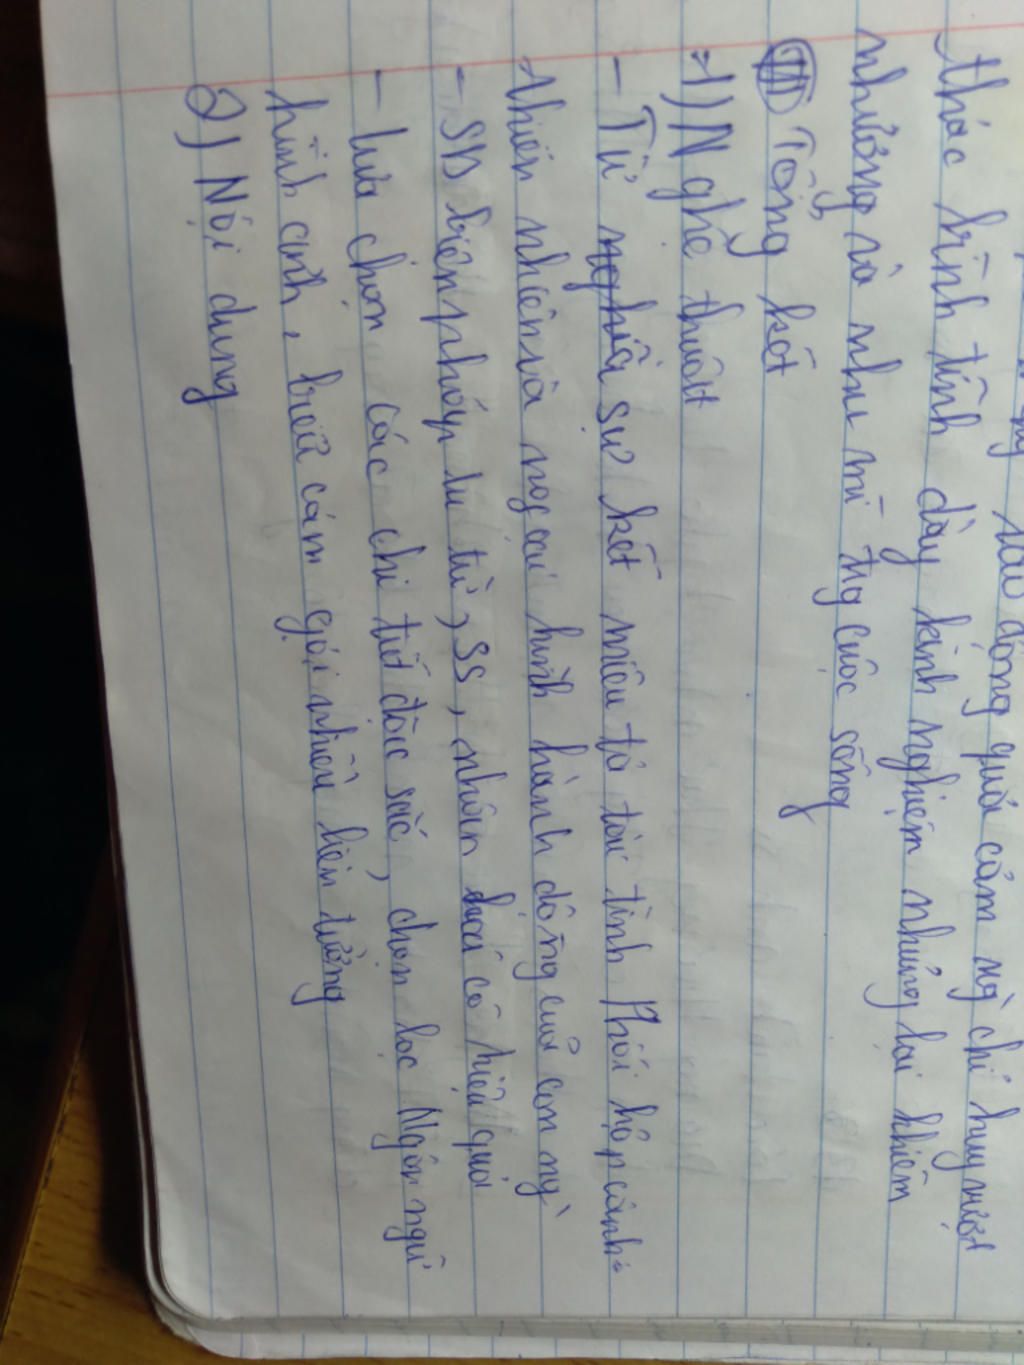 lao động quả cảm ng` chỉ huy vượt
thác bình tĩnh dày kinh nghiệm nhưng lại khiêm
nhường và nhu mì trg cuộc sống
III Tổng kết
1) Nghệ thuật
- Tự sự kết miêu tả tài tình Phối hợp cảnh
thiên nhiên và ngoại hình hành động của con ng`
- SD biện pháp tu từ, SS, nhân hoá có hiệu quả
- lựa chọn các chi tiết đặc sắc, chọn lọc Ngôn ngữ
hình ảnh, biểu cảm gợi nhiều liên tưởng
2) Nội dung